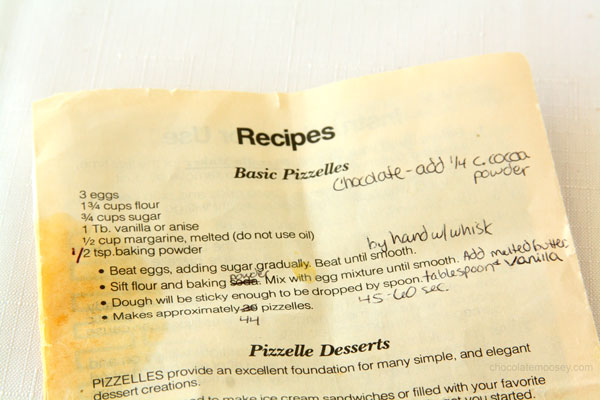 Recipes
Basic Pizzelles
Chocolate - add 1/4 c. cocoa
powder
3 eggs
1 3/4 cups flour
3/4 cups sugar
1 Tb. vanilla or anise
1/2 cup margarine, melted (do not use oil)
1/2 tsp. baking powder
by hand w/ whisk
• Beat eggs, adding sugar gradually. Beat until smooth.
Add melted butter
& vanilla
powder
• Sift flour and baking soda. Mix with egg mixture until smooth.
• Dough will be sticky enough to be dropped by spoon. tablespoon
45-60 sec.
• Makes approximately 30 pizzelles.
44
Pizzelle Desserts
PIZZELLES provide an excellent foundation for many simple, and elegant
dessert creations.
to make ice cream sandwiches or filled with your favorite
get you started.
chocolatemoosey.com